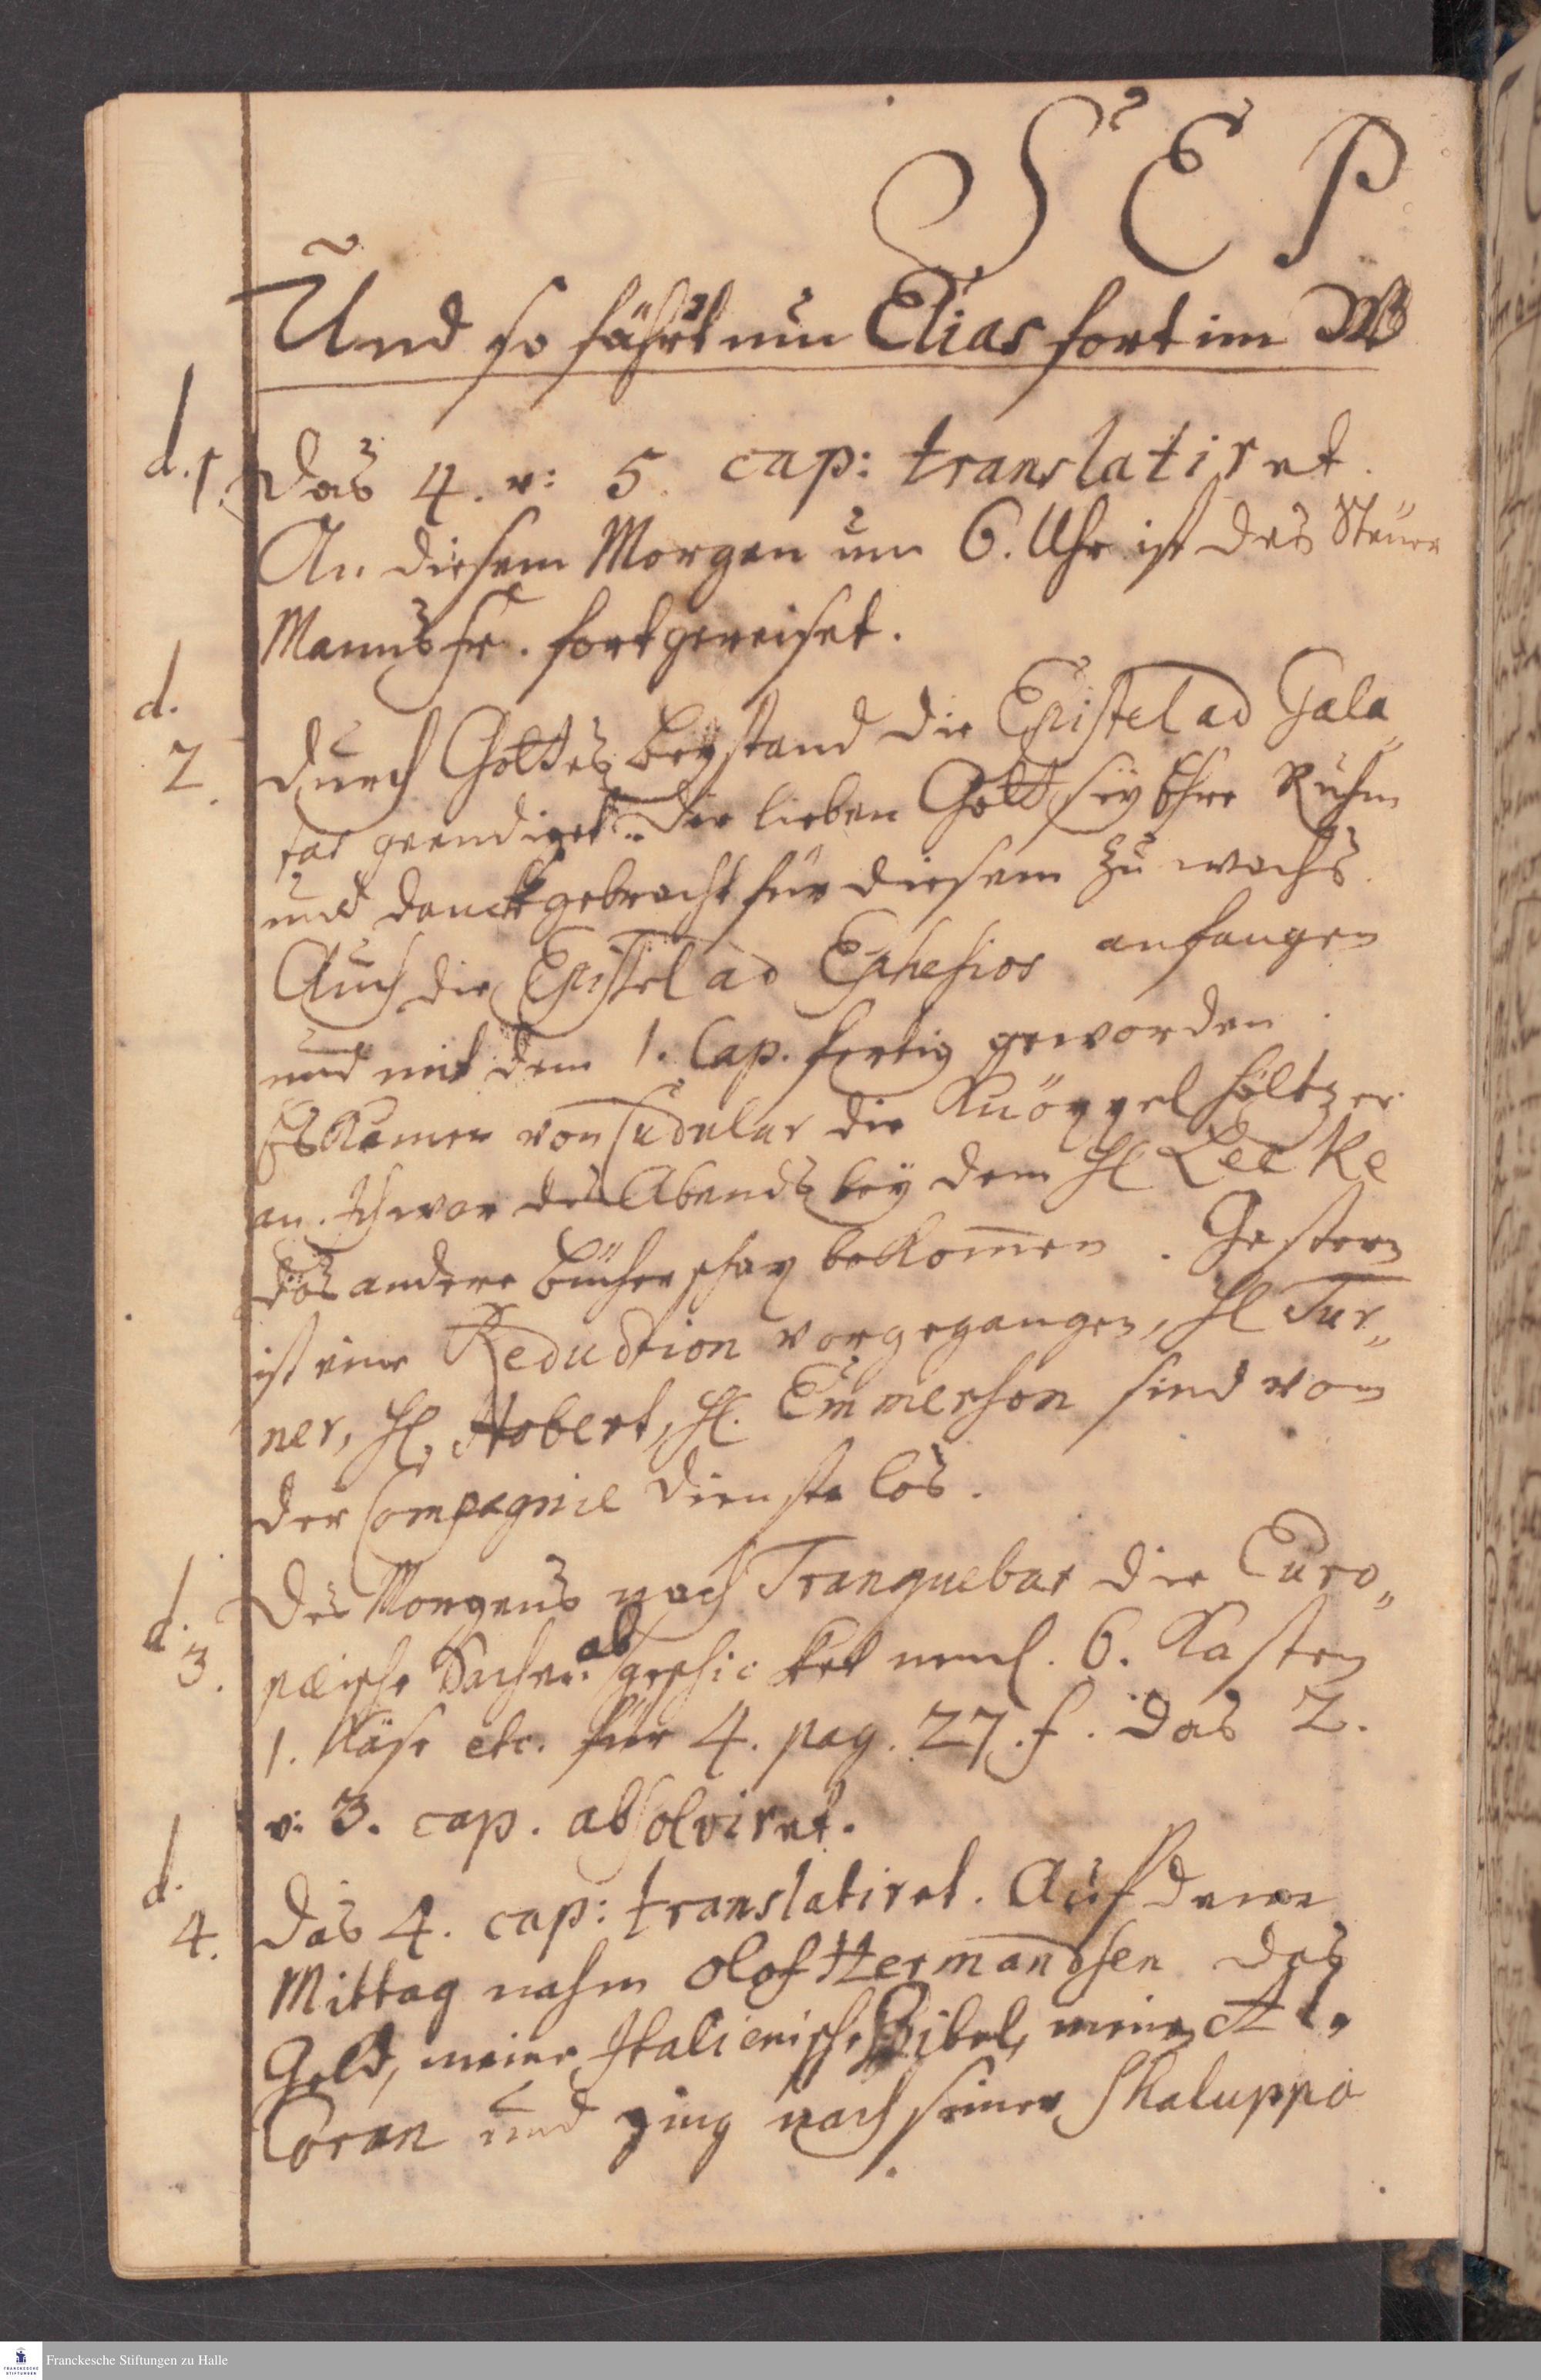 SEP
Und so fährt nun Elias fort im
d. 1. Das 4. u: 5. cap: translatiret.
An diesem Morgen um 6. Uhr ist des Steuer
Manns Fr. fortgereiset.
d. 2. Durch Gottes Beystand die Epistel ad Gala„
tas geendiget. Der lieben Gott sey Ehre Ruhm
und danck gebracht für diesem zu wachs.
Auch die Epistel ad Ephesios anfangen
und mit dem 1. Cap. fertig geworden.
Es kamen von Cudulur die Knöppel höltzer
an. Ich war des Abends bey dem H Leeke
das andere Bücher bekom̅en. Gestern
ist eine Reduction vorgegangen, H Tur„
ner, H. Hobert, H. Emmerson sind von
der Compagnie dienste los.
d. 3. Des Morgens nach Tranquebar die Euro„
pæische Sachen abgeschicket neml. 6. Kasten
1. Käse etc. für 4. pag. 27. f. Das 2.
u: 3. cap. absolviret.
d. 4. Das 4. cap: translatiret. Auf dem
Mittag nahm Olof Hermandsen das
Geld, meine Italienische Bibel, meinen Al„
Coran und ging nach seiner Shaluppa
Franckesche Stiftungen zu Halle